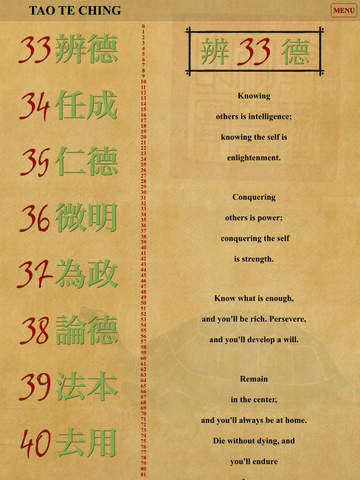 TAO TE CHING
MENU
33 辨德
34 任成
35 仁德
36 微明
37 為政
38 論德
39 法本
40 去用
0
1
2
3
4
5
6
7
8
9
10
11
12
13
14
15
16
17
18
19
20
21
22
23
24
25
26
27
28
29
30
31
32
33
34
35
36
37
38
39
40
41
42
43
44
45
46
47
48
49
50
51
52
53
54
55
56
57
58
59
60
61
62
63
64
65
66
67
68
69
70
71
72
73
74
75
76
77
78
79
80
81
辨 33 德
Knowing
others is intelligence;
knowing the self is
enlightenment.
Conquering
others is power;
conquering the self
is strength.
Know what is enough,
and you'll be rich. Persevere,
and you'll develop a will.
Remain
in the center,
and you'll always be at home.
Die without dying, and
you'll endure